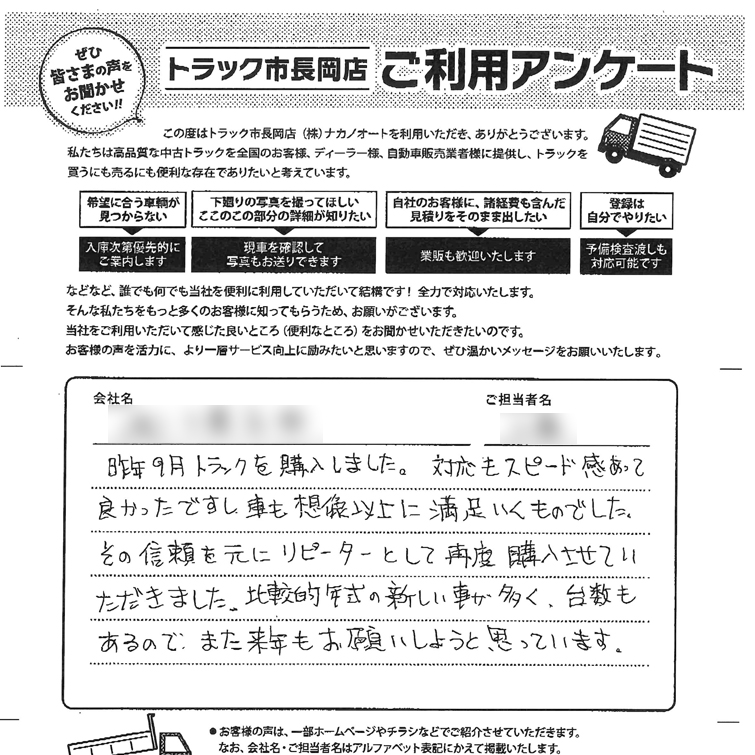 ぜひ
皆さまの声を
お聞かせ
ください!!
トラック市長岡店 ご利用アンケート
この度はトラック市長岡店（株）ナカノオートを利用いただき、ありがとうございます。
私たちは高品質な中古トラックを全国のお客様、ディーラー様、自動車販売業者様に提供し、トラックを
買うにも売るにも便利な存在でありたいと考えています。
希望に合う車輌が
見つからない
入庫次第優先的に
ご案内します
下廻りの写真を撮ってほしい
ここのこの部分の詳細が知りたい
現車を確認して
写真もお送りできます
自社のお客様に、諸経費も含んだ
見積りをそのまま出したい
業販も歓迎いたします
登録は
自分でやりたい
予備検査渡しも
対応可能です
などなど、誰でも何でも当社を便利に利用していただいて結構です！全力で対応いたします。
そんな私たちをもっと多くのお客様に知ってもらうため、お願いがございます。
当社をご利用いただいて感じた良いところ（便利なところ）をお聞かせいただきたいのです。
お客様の声を活力に、より一層サービス向上に励みたいと思いますので、ぜひ温かいメッセージをお願いいたします。
会社名 ご担当者名
昨年9月トラックを購入しました。対応もスピード感あって
良かったですし車も想像以上に満足いくものでした。
その信頼を元にリピーターとして再度購入させてい
ただきました。比較的年式の新しい車が多く、台数も
あるので、また来年もお願いしようと思っています。
●お客様の声は、一部ホームページやチラシなどでご紹介させていただきます。
なお、会社名・ご担当者名はアルファベット表記にかえて掲載いたします。